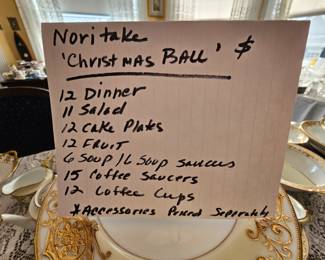 Noritake $
'Christmas Ball'
12 Dinner
11 Salad
12 Cake Plates
12 Fruit
6 Soup / 6 Soup saucers
15 Coffee Saucers
12 Coffee Cups
*Accessories Priced Separately